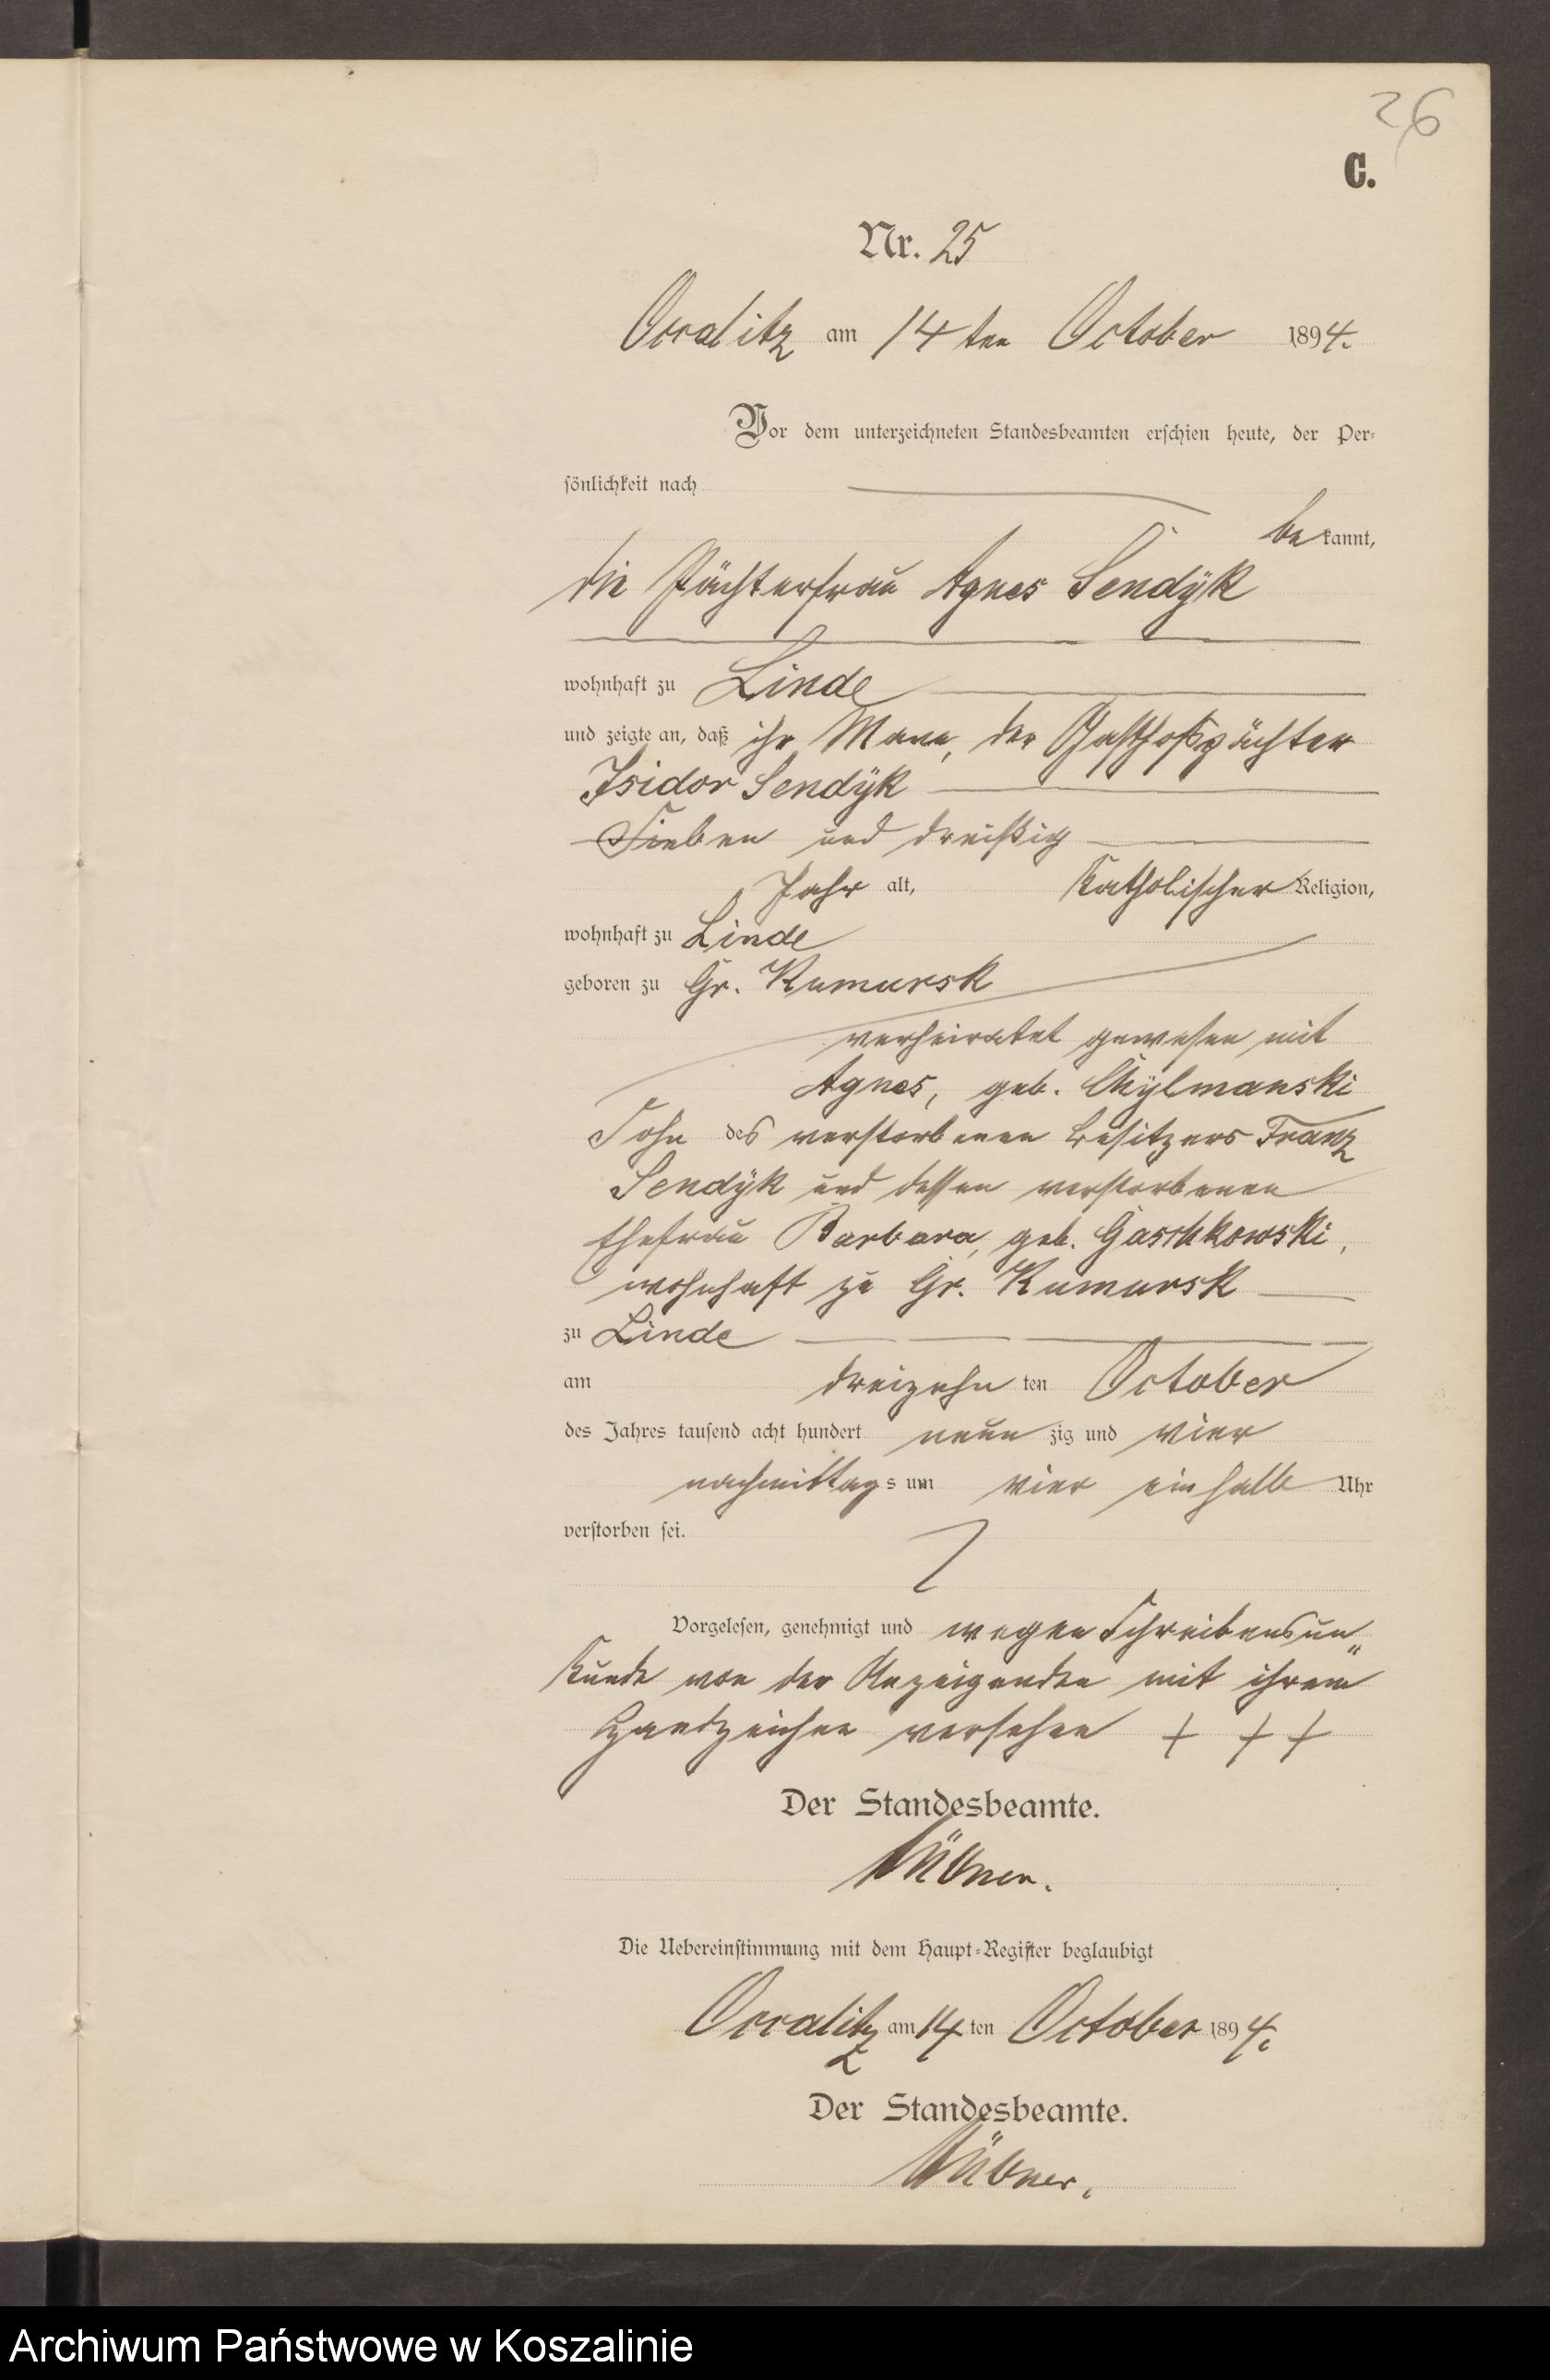 26
C.
Nr. 25
Occalitz am 14ten October 1894.
Vor dem unterzeichneten Standesbeamten erschien heute, der Per-
sönlichkeit nach
bekannt,
die Pächterfrau Agnes Sendÿk
wohnhaft zu Linde
und zeigte an, daß ihr Mann, der Gasthofspächter
Isidor Sendÿk
Sieben und dreißig
Jahr alt, Katholischer Religion,
wohnhaft zu Linde
geboren zu Gr. Kumursk
verheiratet gewesen mit
Agnes, geb. Chÿlmanski
Sohn des verstorbenen Besitzers Franz
Sendÿk und dessen verstorbenen
Ehefrau Barbara, geb. Gaschkowski,
wohnhaft zu Gr. Kumursk
zu Linde
am dreizehnten October
des Jahres tausend acht hundert neunzig und vier
nachmittags um vier ein halb Uhr
verstorben sei.
Vorgelesen, genehmigt und wegen Schreibensun„
kunde von der Anzeigenden mit ihrem
Handzeichen versehen + + +
Der Standesbeamte.
Hübner.
Die Uebereinstimmung mit dem Haupt-Register beglaubigt
Occalitz am 14ten October 1894.
Der Standesbeamte.
Hübner.
Archiwum Państwowe w Koszalinie